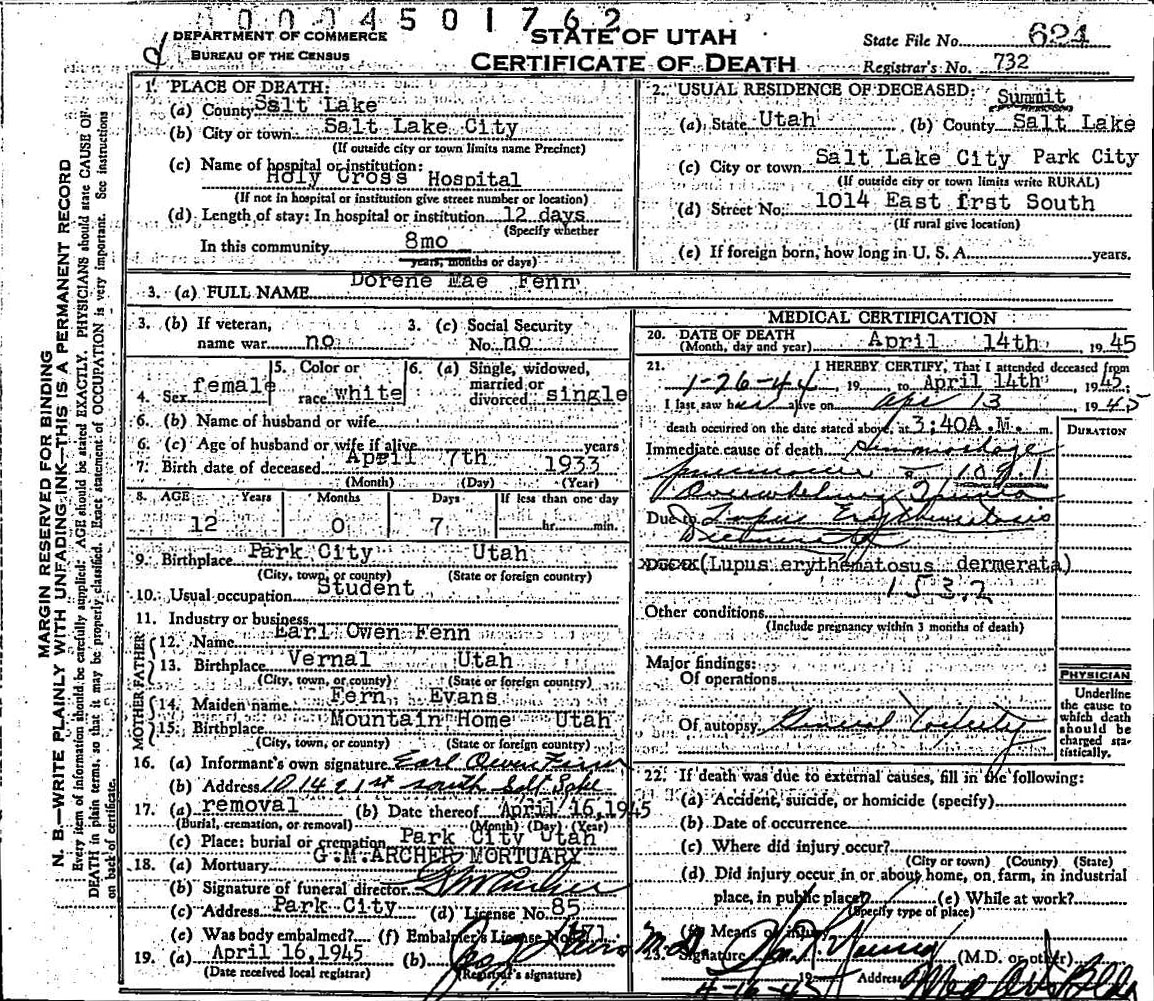 0004501762
DEPARTMENT OF COMMERCE
BUREAU OF THE CENSUS
STATE OF UTAH
CERTIFICATE OF DEATH
State File No. 624
Registrar's No. 732
MARGIN RESERVED FOR BINDING
N. B.—WRITE PLAINLY WITH UNFADING INK—THIS IS A PERMANENT RECORD
Every item of information should be carefully supplied. AGE should be stated EXACTLY. PHYSICIANS should state CAUSE OF
DEATH in plain terms, so that it may be properly classified. Exact statement of OCCUPATION is very important. See instructions
on back of certificate.
1. PLACE OF DEATH:
(a) County Salt Lake
(b) City or town Salt Lake City
(If outside city or town limits name Precinct)
(c) Name of hospital or institution:
Holy Cross Hospital
(If not in hospital or institution give street number or location)
(d) Length of stay: In hospital or institution 12 days
(Specify whether
In this community 8mo
years, months or days)
2. USUAL RESIDENCE OF DECEASED: Summit
(a) State Utah (b) County Salt Lake
(c) City or town Salt Lake City Park City
(If outside city or town limits write RURAL)
(d) Street No. 1014 East frst South
(If rural give location)
(e) If foreign born, how long in U. S. A. years.
3. (a) FULL NAME Dorene Mae Fenn
3. (b) If veteran, name war no
3. (c) Social Security No. no
4. Sex female
5. Color or race white
6. (a) Single, widowed, married or divorced single
6. (b) Name of husband or wife
6. (c) Age of husband or wife if alive years
7. Birth date of deceased April 7th 1933
(Month) (Day) (Year)
8. AGE Years Months Days If less than one day
12 0 7 hr. min.
9. Birthplace Park City Utah
(City, town, or county) (State or foreign country)
10. Usual occupation Student
11. Industry or business
FATHER
12. Name Earl Owen Fenn
13. Birthplace Vernal Utah
(City, town, or county) (State or foreign country)
MOTHER
14. Maiden name Fern Evans
15. Birthplace Mountain Home Utah
(City, town, or county) (State or foreign country)
16. (a) Informant's own signature Earl Owen Fenn
(b) Address 1014 E 1st South Salt Lake
17. (a) removal (b) Date thereof April 16, 1945
(Burial, cremation, or removal) (Month) (Day) (Year)
(c) Place: burial or cremation Park City Utah
18. (a) Mortuary G.M. ARCHER MORTUARY
(b) Signature of funeral director
(c) Address Park City (d) License No. 85
(e) Was body embalmed? (f) Embalmer's License No. 171
19. (a) April 16, 1945 (b) M.D.
(Date received local registrar) (Registrar's signature)
MEDICAL CERTIFICATION
20. DATE OF DEATH
(Month, day and year) April 14th, 1945
21. I HEREBY CERTIFY, That I attended deceased from
1-26-44, 19 to April 14th 1945;
I last saw her alive on Apr 13 1945
death occurred on the date stated above, at 3:40A.M. m.
DURATION
Immediate cause of death
109.1
Due to Lupus Erythematosis
(Lupus erythematosus dermerata)
153.2
Other conditions
(Include pregnancy within 3 months of death)
Major findings:
Of operations
Of autopsy General
PHYSICIAN
Underline the cause to which death should be charged statistically.
22. If death was due to external causes, fill in the following:
(a) Accident, suicide, or homicide (specify)
(b) Date of occurrence
(c) Where did injury occur?
(City or town) (County) (State)
(d) Did injury occur in or about home, on farm, in industrial
place, in public place? (e) While at work?
(Specify type of place)
(f) Means of injury
23. Signature Young (M.D. or other)
4-16-45 19 Address Med Arts Bldg